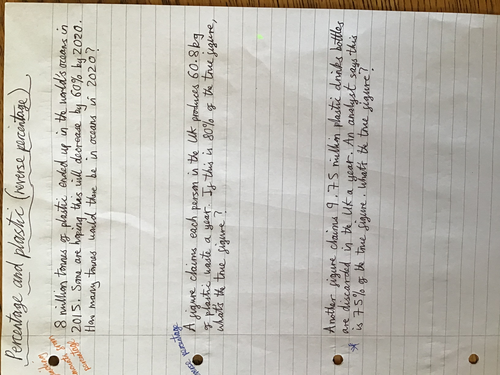 Percentage and plastic (reverse percentage).
8 million tonnes of plastic ended up in the world's oceans in
2015. Some are hoping this will decrease by 60% by 2020.
How many tonnes would there be in oceans in 2020?
A figure claims each person in the UK produces 60.8kg
of plastic waste a year. If this is 80% of the true figure,
what's the true figure?
Another figure claims 9.75 million plastic drinks bottles
are discarded in the UK a year. An analyst says this
is 75% of the true figure. What's the true figure?